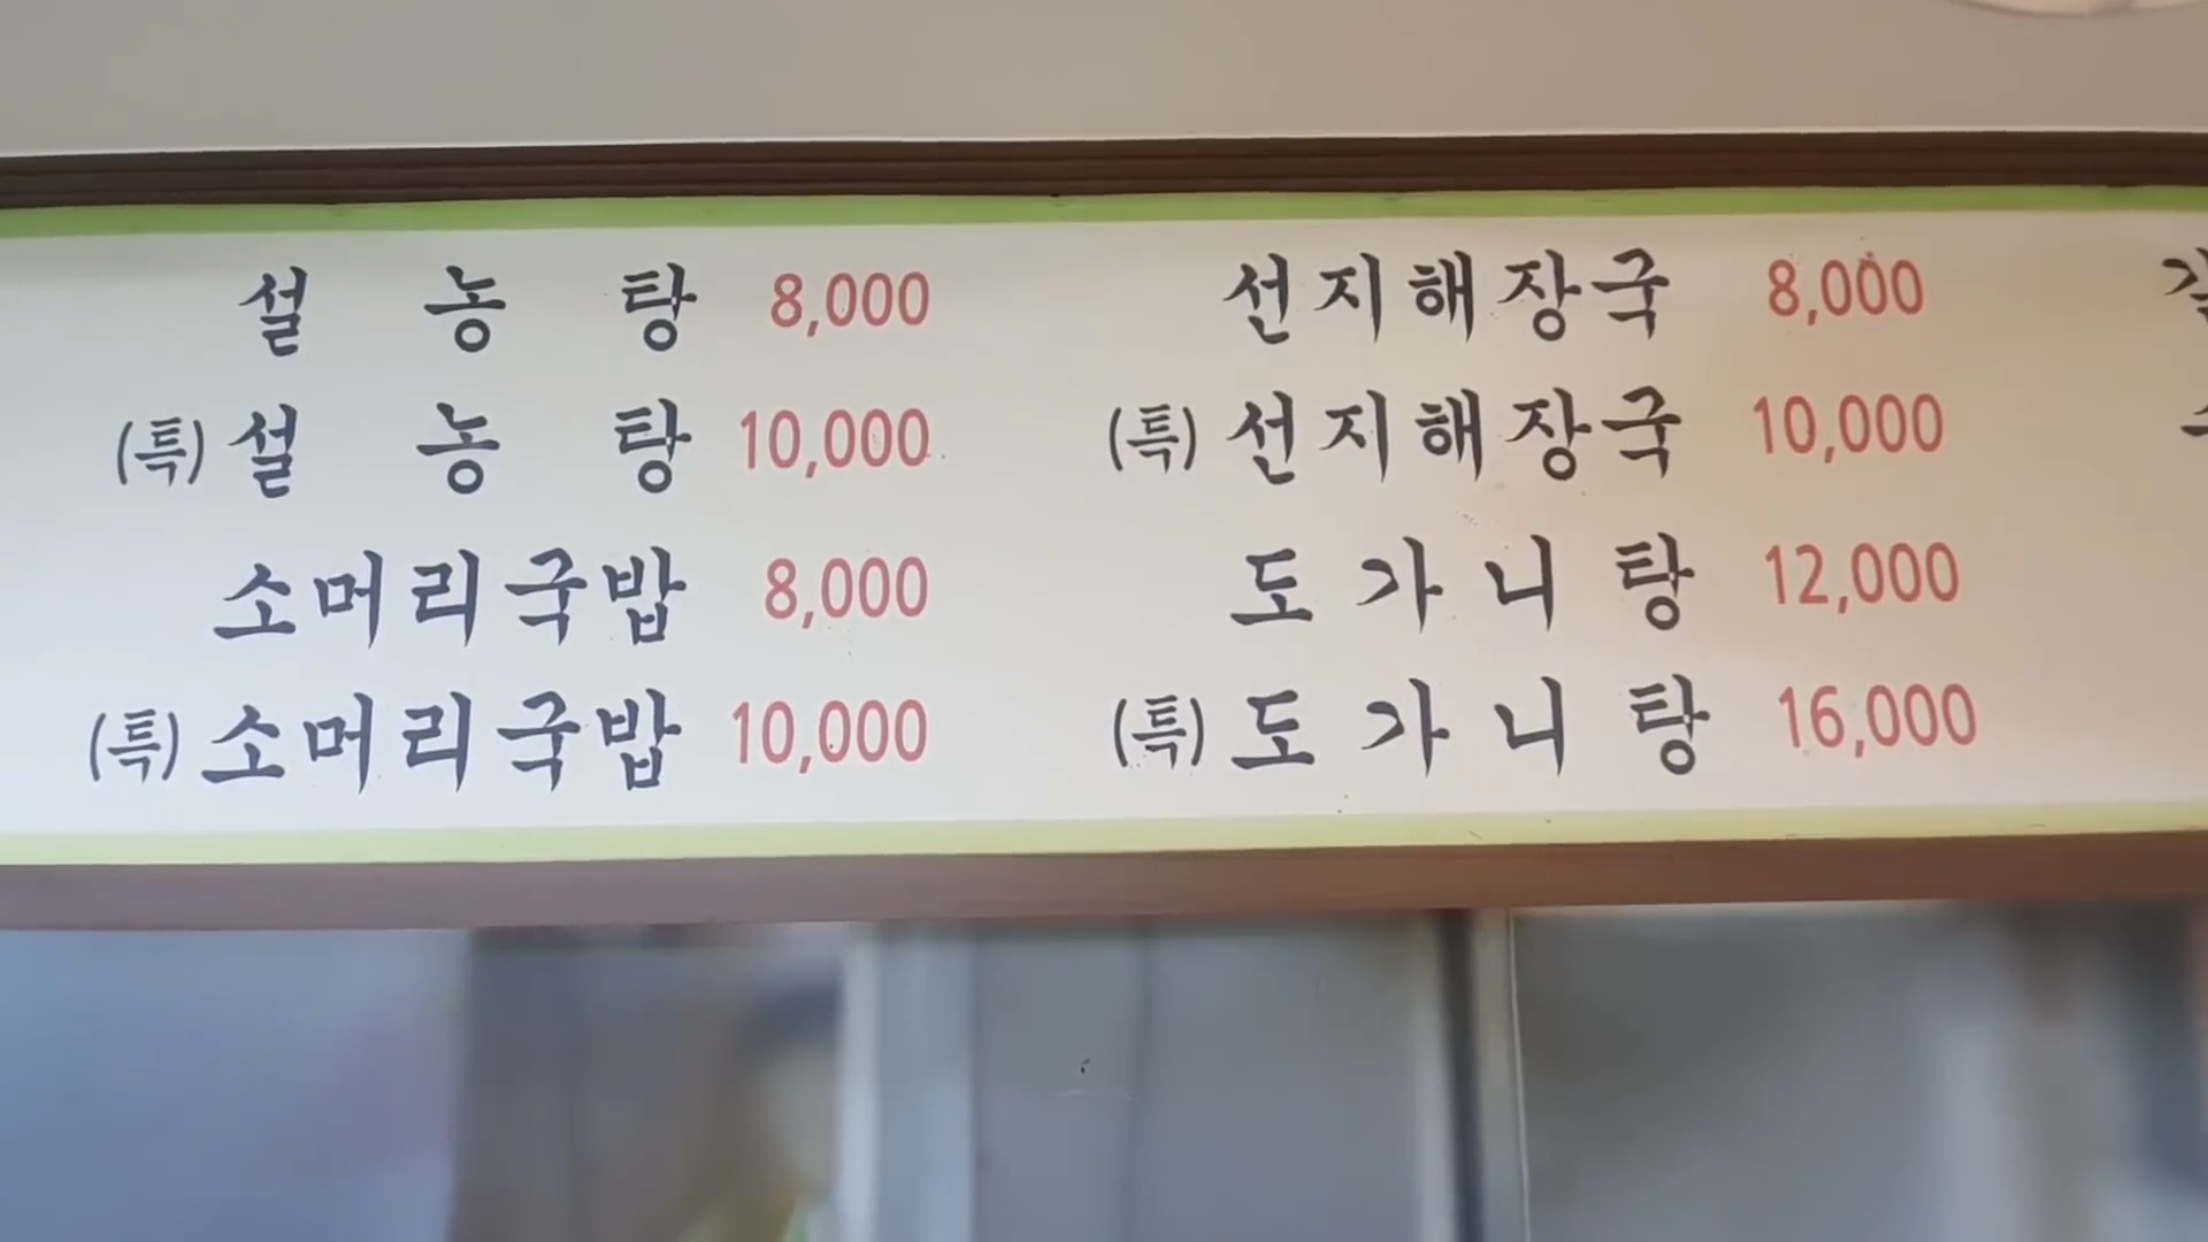 설 농 탕 8,000
(특) 설 농 탕 10,000
소머리국밥 8,000
(특) 소머리국밥 10,000
선지해장국 8,000
(특) 선지해장국 10,000
도 가 니 탕 12,000
(특) 도 가 니 탕 16,000